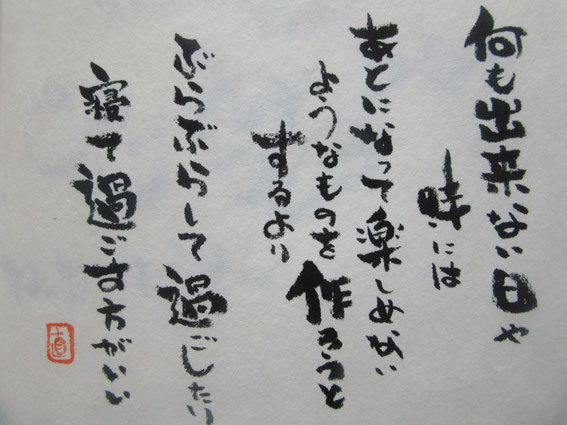 何も出来ない日や
時には
あとになって楽しめない
ようなものを作ろうと
するより
ぶらぶらして過ごしたり
寝て過ごす方がいい
直